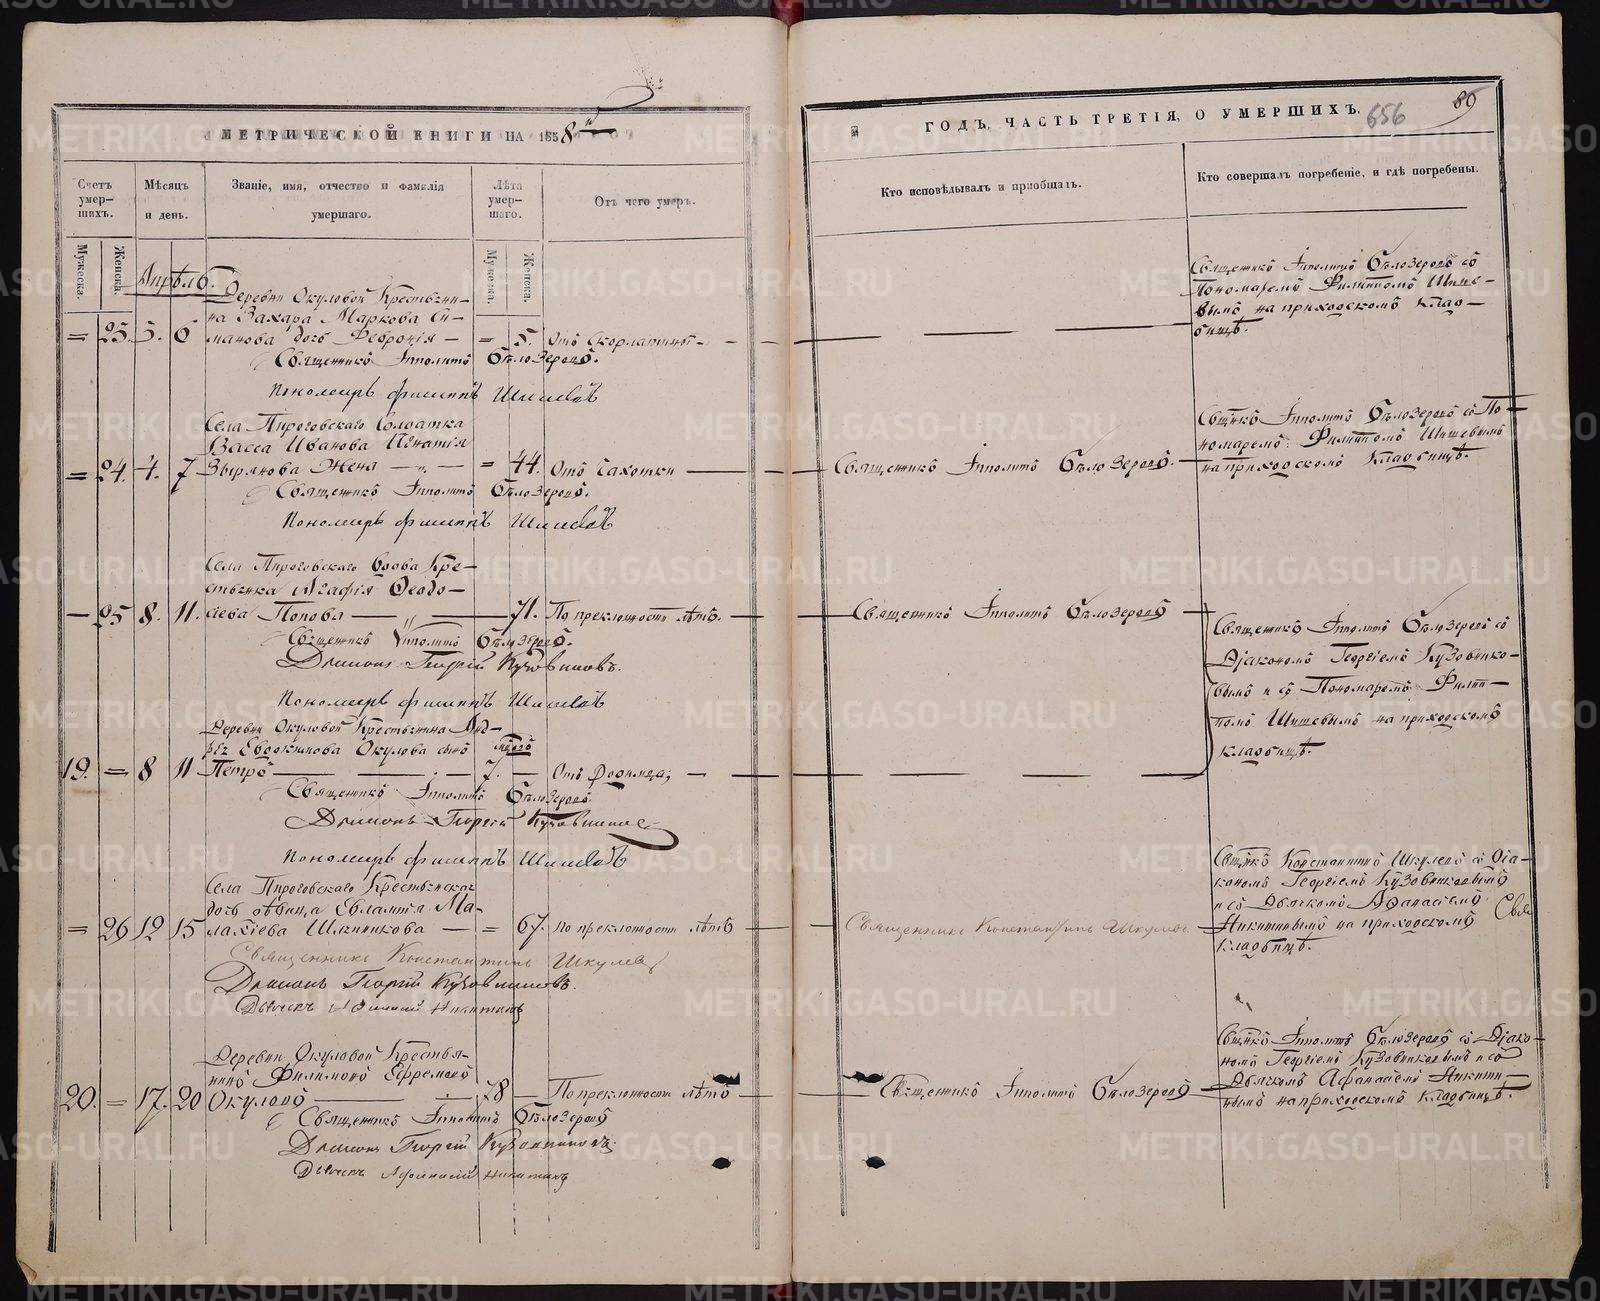 МЕТРИЧЕСКОЙ КНИГИ НА 1858
Счетъ умершихъ.
Мѣсяцъ и день.
Званіе, имя, отчество и фамилія умершаго.
Лѣта умершаго.
Отъ чего умеръ.
Мужеска.
Женска.
Мужеска.
Женска.
Апрѣль.
Деревни Окуловой Крестьяни-
на Захара Маркова Си-
манова дочь Февронія —
= 23. 5. 6 = 5. Отъ Скорлатины —
Священникъ Ипполитъ Бѣлозеровъ.
Пономарь Филиппъ Шишевъ
Села Пироговскаго Солдатка
Васса Иванова Игнатія
Зырянова Жена — „ —
= 24. 4. 7 = 44. Отъ Чахотки
Священникъ Ипполитъ Бѣлозеровъ.
Пономарь Филиппъ Шишевъ
Села Пироговскаго Вдова Кре-
стьянка Агафія Ѳеодо-
сіева Попова
— 25 8. 11. 71. По преклонности лѣтъ.
Священникъ Ипполитъ Бѣлозеровъ.
Діаконъ Георгій Кузовниковъ.
Пономарь Филиппъ Шишевъ
Деревни Окуловой Крестьянина Анд-
рея Евдокимова Окулова сынъ
Петръ
19. = 8 11 7. — Отъ Родимца;
Священникъ Ипполитъ Бѣлозеровъ
Діаконъ Георгій Кузовниковъ
Пономарь Филиппъ Шишевъ
Села Пироговскаго Крестьянская
дочь дѣвица Евлампія Ма-
лахіева Шляпникова
= 26 12 15 = 67. По преклонности лѣтъ
Священникъ Константинъ Шкулевъ
Діаконъ Георгій Кузовниковъ.
Дьячекъ Афанасій Никитинъ
Деревни Окуловой Крестья-
нинъ Филимонъ Ефремовъ
Окуловъ
20. = 17. 20 78 — По преклонности лѣтъ
Священникъ Ипполитъ Бѣлозеровъ
Діаконъ Георгій Кузовниковъ
Дьячекъ Афанасій Никитинъ
ГОДЪ, ЧАСТЬ ТРЕТІЯ, О УМЕРШИХЪ.
656
89
Кто исповѣдывалъ и пріобщалъ.
Кто совершалъ погребеніе, и гдѣ погребены.
Священникъ Ипполитъ Бѣлозеровъ съ
Пономаремъ Филиппомъ Шише-
вымъ на приходскомъ клад-
бищѣ.
Священникъ Ипполитъ Бѣлозеровъ.
Свщнкъ Ипполитъ Бѣлозеровъ съ По-
номаремъ Филиппомъ Шишевымъ
на приходскомъ Кладбищѣ.
Священникъ Ипполитъ Бѣлозеровъ
Священникъ Ипполитъ Бѣлозеровъ съ
Діакономъ Георгіемъ Кузовнико-
вымъ и съ Пономаремъ Филип-
помъ Шишевымъ на приходскомъ
кладбищѣ.
Священникъ Константинъ Шкулевъ
Свщнкъ Константинъ Шкулевъ съ Діа-
кономъ Георгіемъ Кузовниковымъ
и съ Дьячкомъ Афанасіемъ
Никитинымъ на приходскомъ
Кладбищѣ.
Священникъ Ипполитъ Бѣлозеровъ
Свщнкъ Ипполитъ Бѣлозеровъ съ Діако-
номъ Георгіемъ Кузовниковымъ и съ
Дьячкомъ Афанасіемъ Никити-
нымъ на приходскомъ Кладбищѣ.
METRIKI.GASO-URAL.RU